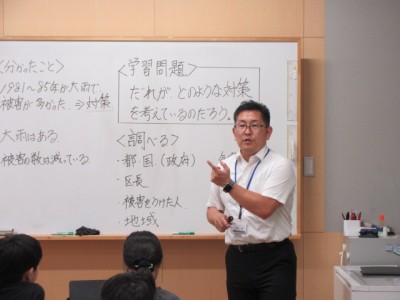 <分かったこと>
1981～85年が大雨で
被害が多かった ⇒対策
大雨はある
被害の数は減っている
<学習問題>
だれが、どのような対策
を考えているのだろう。
<調べる>
・都 国(政府)
・区長
・被害をうけた人
・地域